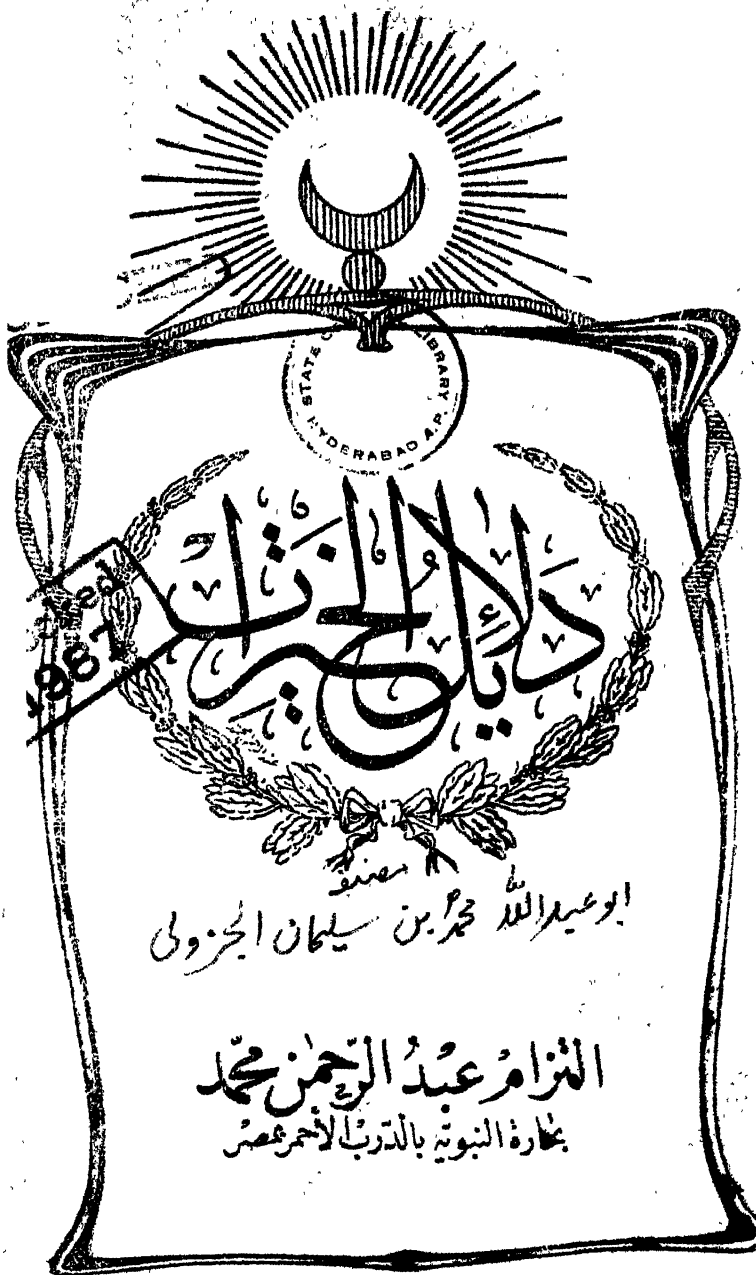 STATE LIBRARY
HYDERABAD A.P.
دَلَائِلُ الخَيْرَاتِ
1987
مصنفه
ابو عبد الله محمد بن سليمان الجزولى
التزام عَبْدُ الرَّحمٰن محمَّد
بحارة النبوتية بالدّرب الأحمر بمصر